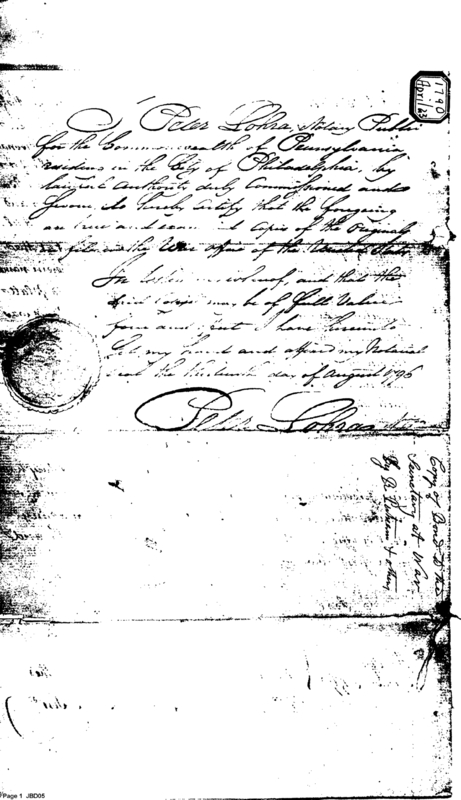 1790
April 23
I Peter Lohra, Notary Public
for the Commonwealth of Pennsylvania
residing in the City of Philadelphia, by
lawful Authority duly Commissioned and
Sworn, do hereby Certify that the foregoing
are true and exact Copies of the Originals
on file in the War office of the United States
In testimony whereof, and that the
said Copies may be of full Value
force and I have hereunto
Set my hand and affixed my Notarial
seal the day of August 1796
Peter Lohra
Copy of Bond to the
Secretary at War
By &
Page 1 JBD05